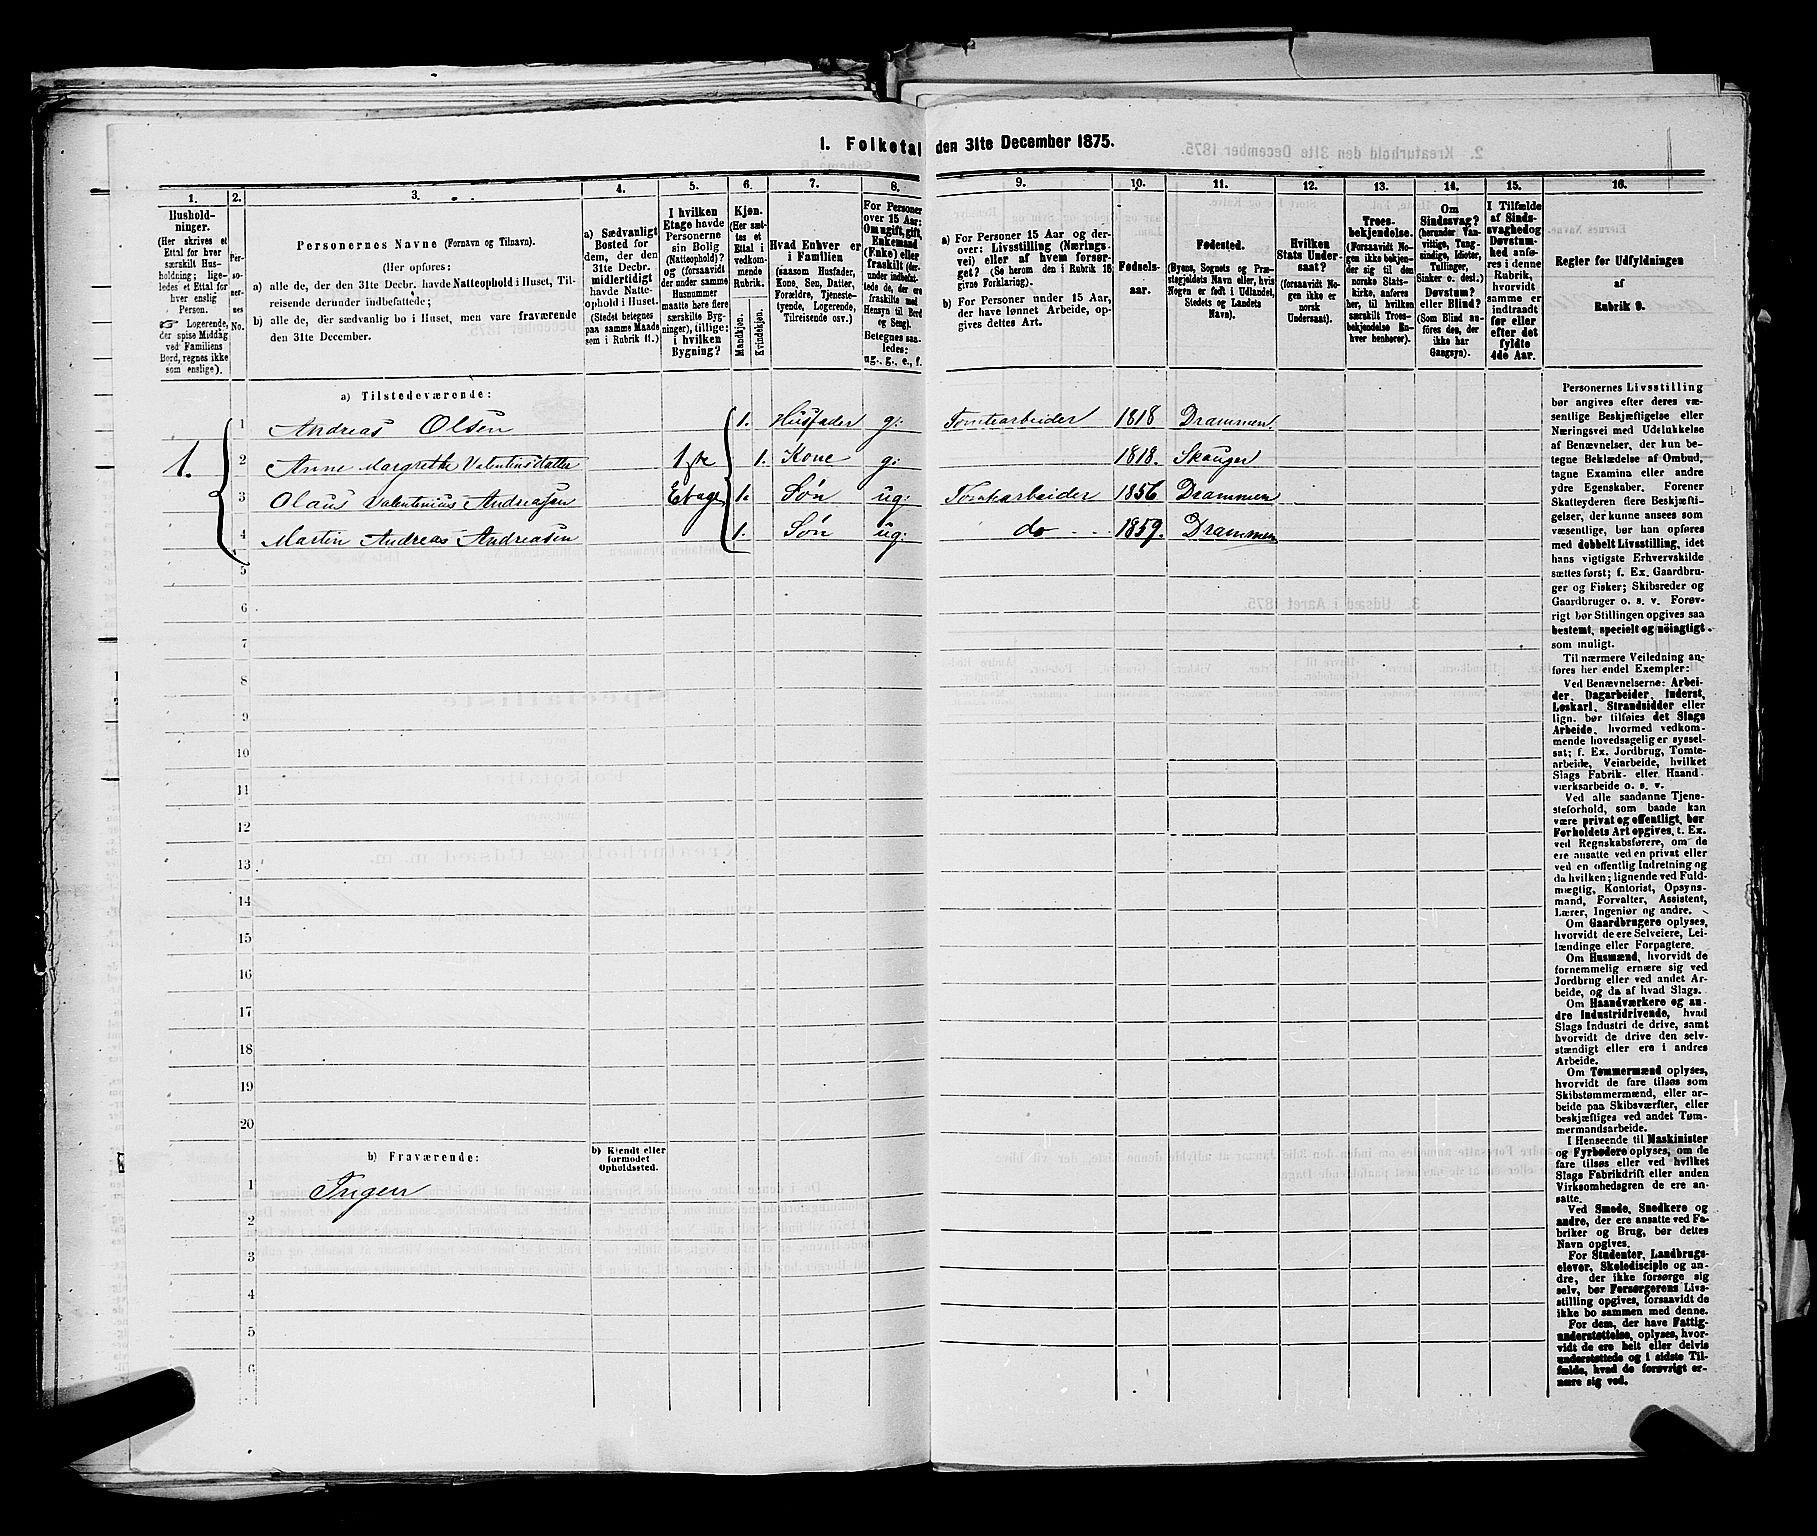 1. Folketal den 31te December 1875.
1.
2.
3.
4.
5.
6.
7.
8.
9.
10.
11.
12.
13.
14.
15.
16.
Hushold-
ninger.
(Her skrives et
Ettal for hver
særskilt Hus-
holdning; lige-
ledes et Ettal for
hver enslig
Person.
☞ Logerende,
der spise Middag
ved Familiens
Bord, regnes ikke
som enslige).
Per-
so-
ner-
nes
No.
Personernes Navne (Fornavn og Tilnavn).
(Her opføres:
a) alle de, der den 31te Decbr. havde Natteophold i Huset, Til-
reisende derunder indbefattede;
b) alle de, der sædvanlig bo i Huset, men vare fraværende
den 31te December.
a) Sædvanligt
Bosted for
dem, der den
31te Decbr.
midlertidigt
havde Natte-
ophold i Huset.
(Stedet betegnes
paa samme Maade
som i Rubrik 11.)
I hvilken
Etage havde
Personerne
sin Bolig
(Natteophold)?
og (forsaavidt
der under samme
Husnummer
maatte høre flere
særskilte Byg-
ninger), tillige:
i hvilken
Bygning?
Kjøn.
(Her sæt-
tes et
Ettal i
vedkom-
mende
Rubrik.
Mandkjøn.
Kvindekjøn.
Hvad Enhver er
i Familien
(saasom Husfader,
Kone, Søn, Datter,
Forældre, Tjeneste-
tyende, Logerende,
Tilreisende osv.)
For Personer
over 15 Aar:
Om ugift, gift,
Enkemand
(Enke) eller
fraskilt (der-
under indbefat-
tede de, der ere
fraskilte med
Hensyn til Bord
og Seng).
Betegnes saa-
ledes:
ug., g., e., f.
a) For Personer 15 Aar og der-
over: Livsstilling (Nærings-
vei) eller af hvem forsør-
get? (Se herom den i Rubrik 16
givne Forklaring).
b) For Personer under 15 Aar,
der have lønnet Arbeide, op-
gives dettes Art.
Fødsels-
aar.
Fødested.
(Byens, Sognets og Præ-
stegjeldets Navn eller, hvis
Nogen er født i Udlandet,
Stedets og Landets
Navn).
Hvilken
Stats Under-
saat?
(forsaavidt No-
gen ikke er
norsk
Undersaat).
Troes-
bekjendelse.
(Forsaavidt No-
gen ikke bekjen-
der sig til den
norske Stats-
kirke, anføres
her, til hvilken
særskilt Troes-
bekjendelse En-
hver henhører).
Om
Sindssvag?
(herunder Van-
vittige, Tung-
sindige, Idioter,
Tullinger,
Sinker o. desl.)
Døvstum?
eller Blind?
(Som Blind an-
føres den, der
ikke har
Gangsyn).
I Tilfælde
af Sinds-
svaghed og
Døvstum-
hed anfø-
res i denne
Rubrik,
hvorvidt
samme er
indtraadt
før eller
efter det
fyldte
4de Aar.
Regler for Udfyldningen
af
Rubrik 9.
a) Tilstedeværende:
1. 1 Andreas Olsen 1. Husfader g: Tomtearbeider 1818 Drammen
2 Anne Margrethe Valentinsdatter 1ste 1. Kone g: 1818. Skauger
3 Olaus Valentinius Andreasen Etage 1. Søn ug: Tomtearbeider 1856 Drammen
4 Martin Andreas Andreasen 1. Søn ug: do 1859. Drammen
5
6
7
8
9
10
11
12
13
14
15
16
17
18
19
20
b) Fraværende:
b) Kjendt eller
formodet
Opholdssted.
1 Ingen
2
3
4
5
6
Personernes Livsstilling
bør angives efter deres væ-
sentlige Beskjæftigelse eller
Næringsvei med Udelukkelse
af Benævnelser, der kun be-
tegne Beklædelse af Ombud,
tagne Examina eller andre
ydre Egenskaber. Forener
Skatteyderen flere Beskjæfti-
gelser, der kunne ansees som
væsentlige, bør han opføres
med dobbelt Livsstilling, idet
hans vigtigste Erhvervskilde
sættes først; f. Ex. Gaardbru-
ger og Fisker; Skibsreder og
Gaardbruger o. s. v. Forøv-
rigt bør Stillingen opgives saa
bestemt, specielt og nöiagtigt
som muligt.
Til nærmere Veiledning an-
føres her endel Exempler:
Ved Benævnelserne: Arbei-
der, Dagarbeider, Inderst,
Løskarl, Strandsidder eller
lign. bør tilføies det Slags
Arbeide, hvormed vedkom-
mende hovedsagelig er syssel-
sat; f. Ex. Jordbrug, Tomte-
arbeide, Veiarbeide, hvilket
Slags Fabrik- eller Haand-
værksarbeide o. s. v.
Ved alle saadanne Tjene-
steforhold, som baade kan
være privat og offentligt, bør
Forholdets Art opgives, t. Ex.
ved Regnskabsførere, om de
ere ansatte ved en privat eller
ved en offentlig Indretning og
da hvilken; lignende ved Fuld-
mægtig, Kontorist, Opsyns-
mand, Forvalter, Assistent,
Lærer, Ingeniør og andre.
Om Gaardbrugere oplyses,
hvorvidt de ere Selveiere, Lei-
lændinge eller Forpagtere.
Om Husmænd, hvorvidt de
fornemmelig ernære sig ved
Jordbrug eller ved andet Ar-
beide, og da af hvad Slags.
Om Haandværkere og an-
dre Industridrivende, hvad
Slags Industri de drive, samt
hvorvidt de drive den selv-
stændigt eller ere i andres
Arbeide.
Om Tømmermænd oplyses,
hvorvidt de fare tilsøs som
Skibstømmermænd, eller ar-
beide paa Skibsværfter, eller
beskjæftiges ved andet Tøm-
mermandsarbeide.
I Henseende til Maskinister
og Fyrbødere oplyses, om de
fare tilsøs eller ved hvilket
Slags Fabrikdrift eller anden
Virksomhedsgren de ere an-
satte.
Ved Smede, Snedkere og
andre, der ere ansatte ved Fa-
briker og Brug, bør dettes
Navn opgives.
For Studenter, Landbrugs-
elever, Skoledisciple og an-
dre, der ikke forsørge sig
selv, bør Forsørgerens Livs-
stilling opgives, forsaavidt de
ikke bo sammen med denne.
For dem, der have Fattig-
understøttelse, oplyses, hvor-
vidt de ere helt eller delvis
understøttede og i sidste Til-
fælde, hvad de forøvrigt er-
nære sig ved.